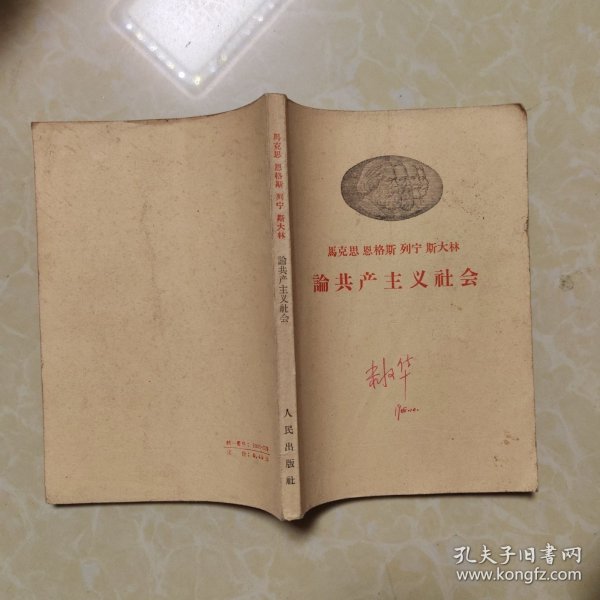 馬克思 恩格斯 列宁 斯大林
論共产主义社会
馬克思 恩格斯 列宁 斯大林
論共产主义社会
人民出版社
孔夫子旧书网
www.kongfz.com